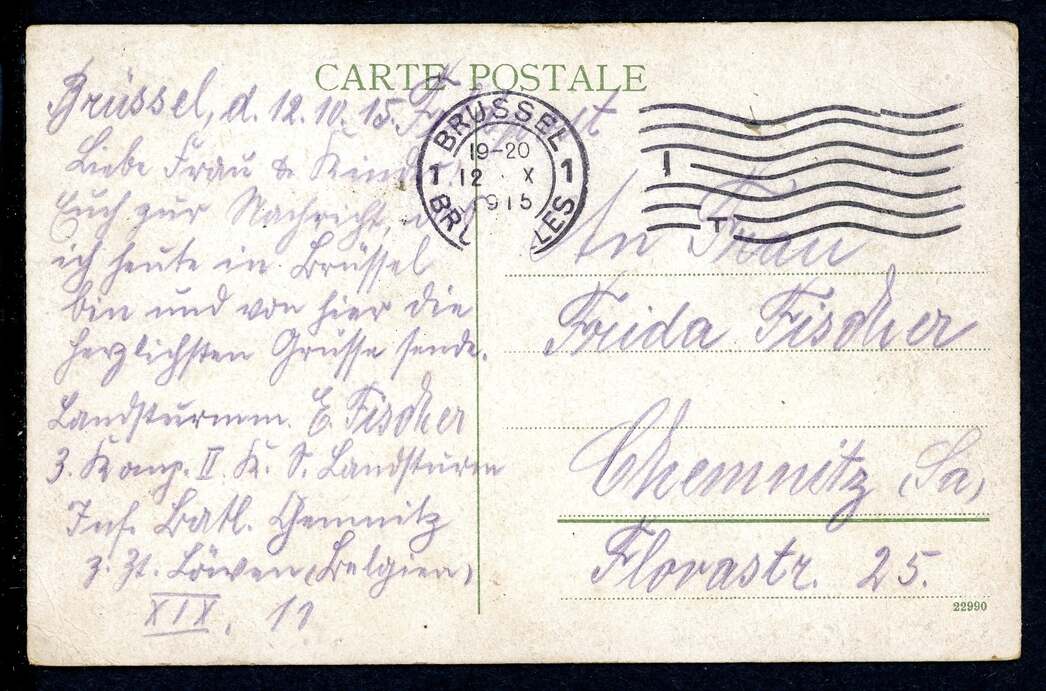 CARTE POSTALE
Brüssel, d. 12.10.15. Feldpost
BRUSSEL
19-20
1 12 X 1
1915
BRU LES
Liebe Frau &
Euch zur Nachricht,
ich heute in Brüssel
bin und von hier die
herzlichsten Grüsse sende.
Landsturmm. E. Fischer
3. Komp. II. K. S. Landsturm
Inf. Batl. Chemnitz
z. Zt. Löwen (Belgien)
XIX. 11
An Frau
Frida Fischer
Chemnitz (Sa)
Florastr. 25.
22990